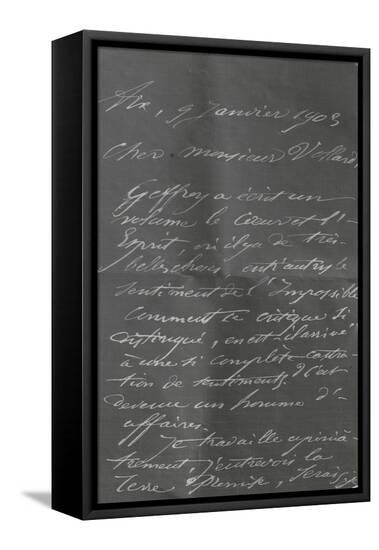 Aix, 9 Janvier 1903
Cher monsieur Vollard,
Geffroy a écrit un
volume le cœur et l'-
Esprit, où il ya de très
belles choses entr'autres le
sentiment de l'Impossible
comment ce critique si
distingué, en est-il arrivé
à une si complète castra-
tion de sentiments. C'est
devenu un homme d'-
affaires.
Je travaille opiniâ-
trement, j'entrevois la
Terre promise, Serais-je